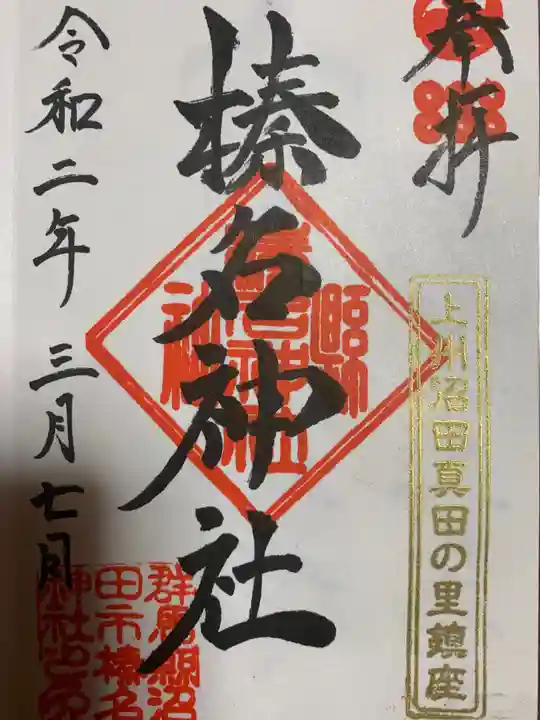 奉拝
上州沼田真田の里鎮座
榛名神社
令和二年 三月七日
群馬縣沼
田市榛名
神社之印